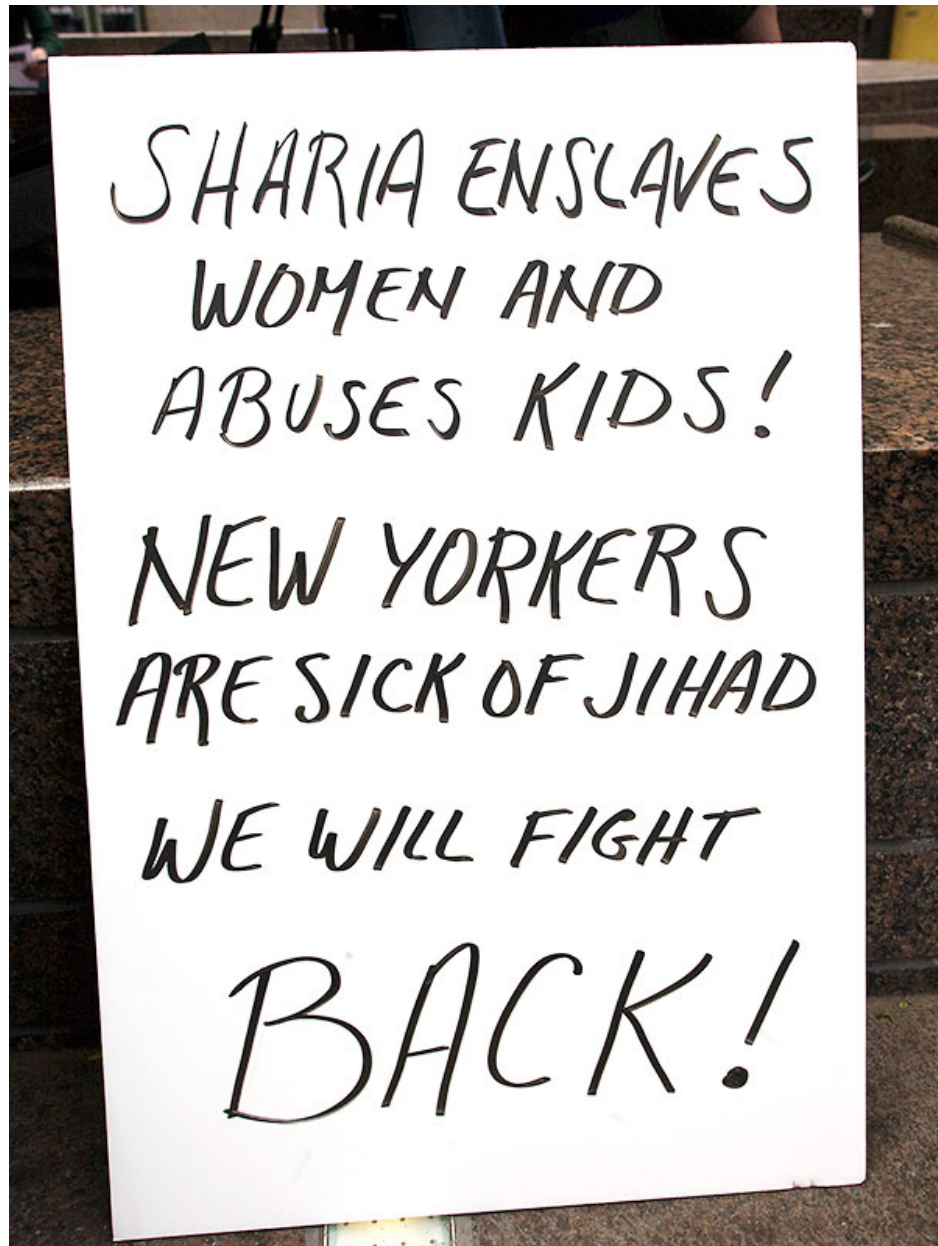 SHARIA ENSLAVES
WOMEN AND
ABUSES KIDS!
NEW YORKERS
ARE SICK OF JIHAD
WE WILL FIGHT
BACK!